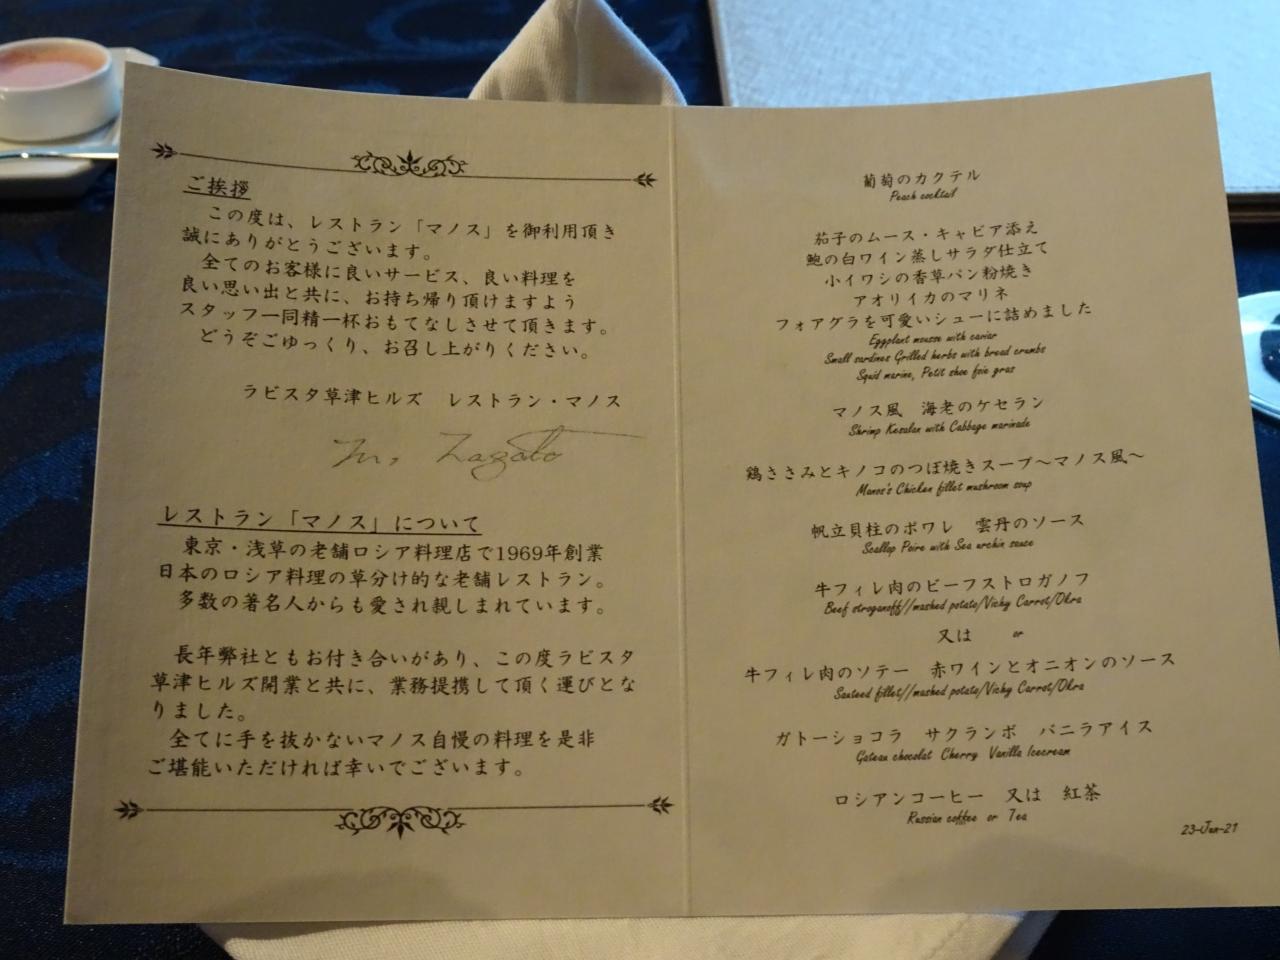 ご挨拶
この度は、レストラン「マノス」を御利用頂き
誠にありがとうございます。
全てのお客様に良いサービス、良い料理を
良い思い出と共に、お持ち帰り頂けますよう
スタッフ一同精一杯おもてなしさせて頂きます。
どうぞごゆっくり、お召し上がりください。
ラビスタ草津ヒルズ レストラン・マノス
レストラン「マノス」について
東京・浅草の老舗ロシア料理店で1969年創業
日本のロシア料理の草分け的な老舗レストラン。
多数の著名人からも愛され親しまれています。
長年弊社ともお付き合いがあり、この度ラビスタ
草津ヒルズ開業と共に、業務提携して頂く運びとな
りました。
全てに手を抜かないマノス自慢の料理を是非
ご堪能いただければ幸いでございます。
葡萄のカクテル
Peach cocktail
茄子のムース・キャビア添え
鮑の白ワイン蒸しサラダ仕立て
小イワシの香草パン粉焼き
アオリイカのマリネ
フォアグラを可愛いシューに詰めました
Eggplant mousse with caviar
Small sardines Grilled herbs with bread crumbs
Squid marine, Petit shoe foie gras
マノス風 海老のケセラン
Shrimp Keselan with Cabbage marinade
鶏ささみとキノコのつぼ焼きスープ～マノス風～
Manos's Chicken fillet mushroom soup
帆立貝柱のポワレ 雲丹のソース
Scallop Poire with Sea urchin sauce
牛フィレ肉のビーフストロガノフ
Beef stroganoff//mashed potato/Vichy Carrot/Okra
又は or
牛フィレ肉のソテー 赤ワインとオニオンのソース
Sauteed fillet//mashed potato/Vichy Carrot/Okra
ガトーショコラ サクランボ バニラアイス
Gateau chocolat Cherry Vanilla Icecream
ロシアンコーヒー 又は 紅茶
Russian coffee or Tea
23-Jun-21